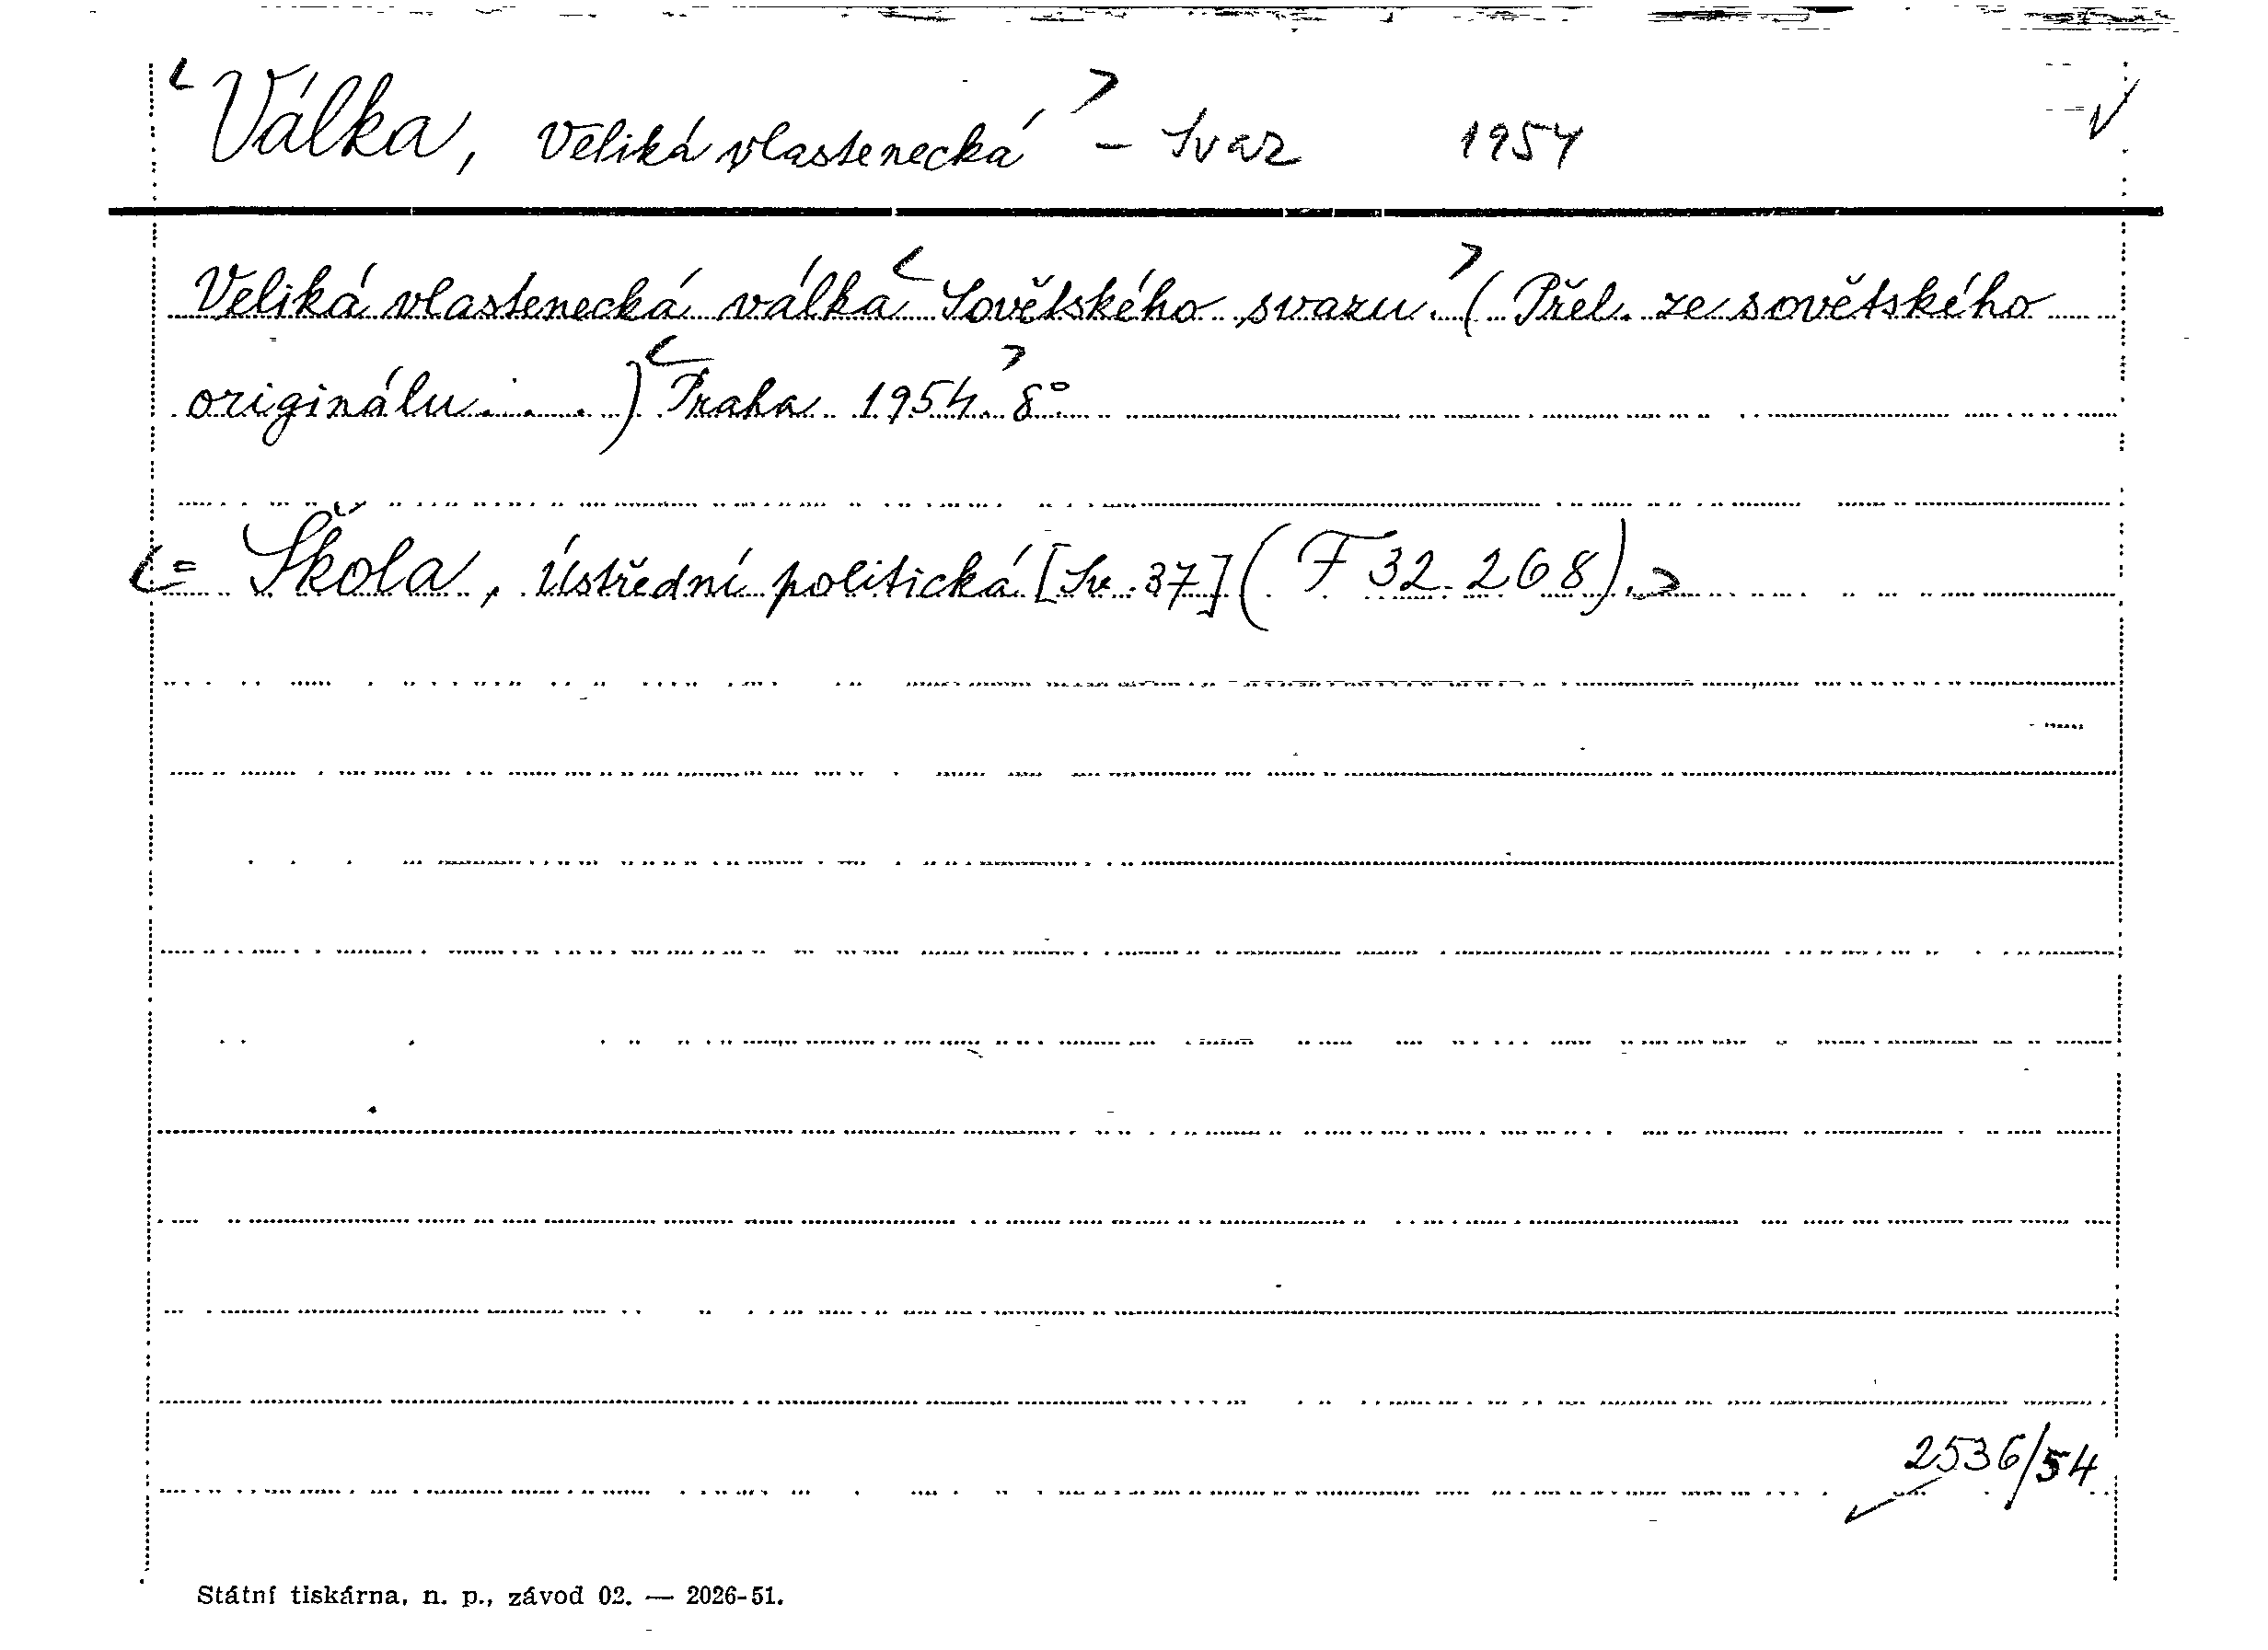 < Válka, Veliká vlastenecká > – Svaz 1954 √
Veliká vlastenecká válka < Sovětského svazu. > ( Přel. ze sovětského
originálu. . . ) < Praha 1954. > 8°.
< = Škola, Ústřední politická [Sv. 37] ( F 32.268). >
2536/54
Státní tiskárna, n. p., závod 02. — 2026-51.